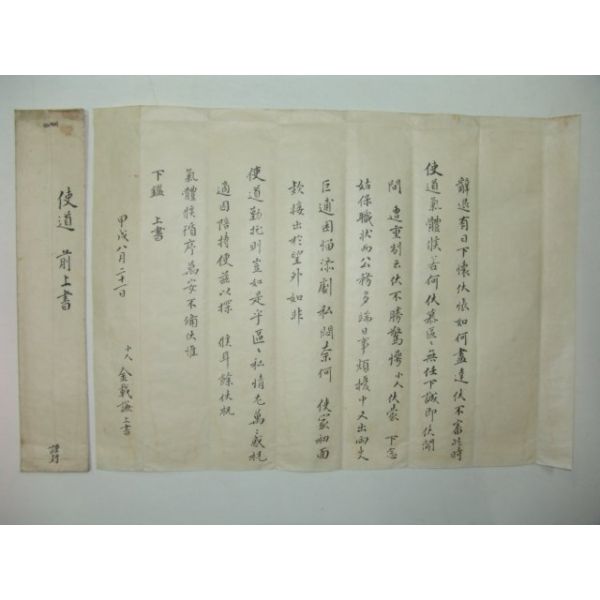 辭退有日下懷伏悵如何盡達伏不審此時
使道氣體候若何伏慕區〻無任下誠卽伏聞
間 遭重制云伏不勝驚愕小人伏蒙 下念
姑保職狀而公務多端日事煩擾中又出兩丈
巨逋因惱添劇私悶奈何 使家初面
款接出於望外如非
使道勤托則豈如是乎區〻私情尤萬〻感祝
適因陪持便玆以探 候耳餘伏祝
氣體候循序萬安不備伏惟
下鑑 上書
甲戌八月二十一日
小人 金載謙 上書
使道 前 上書
謹封